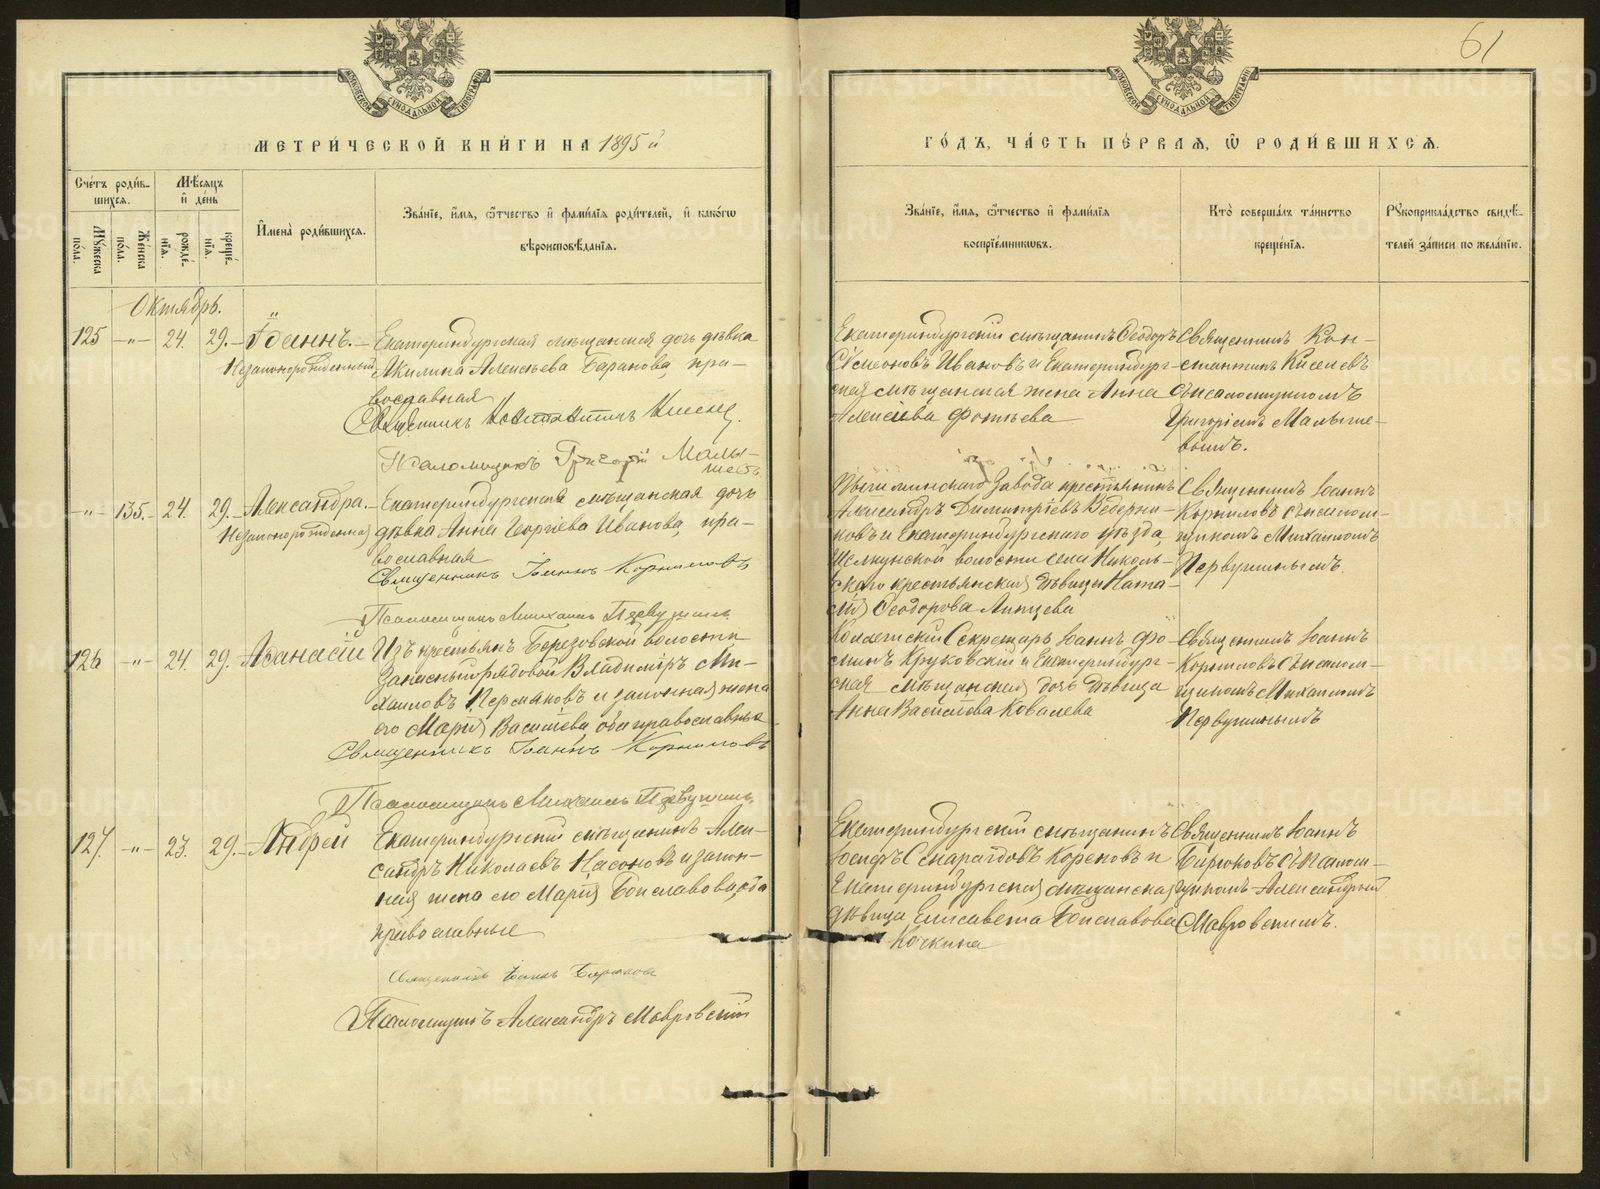 61
МЕТРИ́ЧЕСКОЙ КНИ́ГИ НА 1895 й
ГО́ДЪ, ЧА́СТЬ ПЕ́РВАЯ, Ѡ РОДИ́ВШИХСЯ.
Сче́тъ роди́в-
шихся.
Мꙋ́жеска по́ла.
Же́нска по́ла.
Мѣ́сяцъ и де́нь
рожде́нїя.
креще́нїя.
И҆мена̀ роди́вшихся.
Зва́нїе, и҆́мя, ѻ҆́тчество и҆ фами́лїя роди́телей, и҆ како́гѡ
вѣроисповѣ́данїя.
Зва́нїе, и҆́мя, ѻ҆́тчество и҆ фами́лїя
воспрїе́мникѡвъ.
Кто̀ соверша́лъ та́инство
креще́нїя.
Рꙋкоприкла́дство свидѣ́-
телей за́писи по жела́нїю.
Октябрь.
125 -"- 24. 29. Іоаннъ.
Незаконорожденный
Екатеринбургская мѣщанская дочь дѣвка
Акилина Алексѣева Баранова, пра-
вославная
Священникъ Константинъ Киселевъ.
Псаломщикъ Григорій Малы-
шевъ
Екатеринбургскій мѣщанинъ Ѳеодоръ
Сѵмеоновъ Ивановъ и Екатеринбург-
ская мѣщанская жена Анна
Алексіева Фотѣева
Священникъ Кон-
стантинъ Киселевъ
съ псаломщикомъ
Григоріемъ Малыше-
вымъ.
-"- 135. 24. 29. Александра.
Незаконорожденная
Екатеринбургская мѣщанская дочь
дѣвка Анна Георгіева Иванова, пра-
вославная
Священникъ Іоаннъ Корниловъ
Псаломщикъ Михаилъ Первушинъ
Пышминскаго завода крестьянинъ
Александръ Димитріевъ Ведерни-
ковъ и Екатеринбургскаго уѣзда,
волости села Николь-
скаго крестьянская дѣвица Ната-
лія Ѳеодорова
Священникъ Іоаннъ
Корниловъ съ псалом-
щикомъ Михаиломъ
Первушинымъ.
126 -"- 24. 29. Аѳанасій
Изъ крестьянъ Березовской волости
Запасный рядовой Владиміръ Ми-
хаиловъ Пермяковъ и законная жена
его Марія Васильева, оба православные
Священникъ Іоаннъ Корниловъ
Псаломщикъ Михаилъ Первушинъ.
Коллежскій Секретарь Іоаннъ Фо-
минъ Круковскій и Екатеринбург-
ская мѣщанская дочь дѣвица
Анна Васильева Ковалева
Священникъ Іоаннъ
Корниловъ съ псалом-
щикомъ Михаиломъ
Первушинымъ
127. -"- 23. 29. Андрей
Екатеринбургскій мѣщанинъ Алек-
сандръ Николаевъ Насоновъ и закон-
ная жена его Марія Болеславова, оба
православные
Священникъ Іоаннъ Бирюковъ
Псаломщикъ Александръ Мавровскій
Екатеринбургскій мѣщанинъ
Іосифъ Кореновъ и
Екатеринбургская мѣщанская
дѣвица Елисавета Болеславова
Кочкина
Священникъ Іоаннъ
Бирюковъ съ псалом-
щикомъ Александромъ
Мавровскимъ.
METRIKI.GASO-URAL.RU